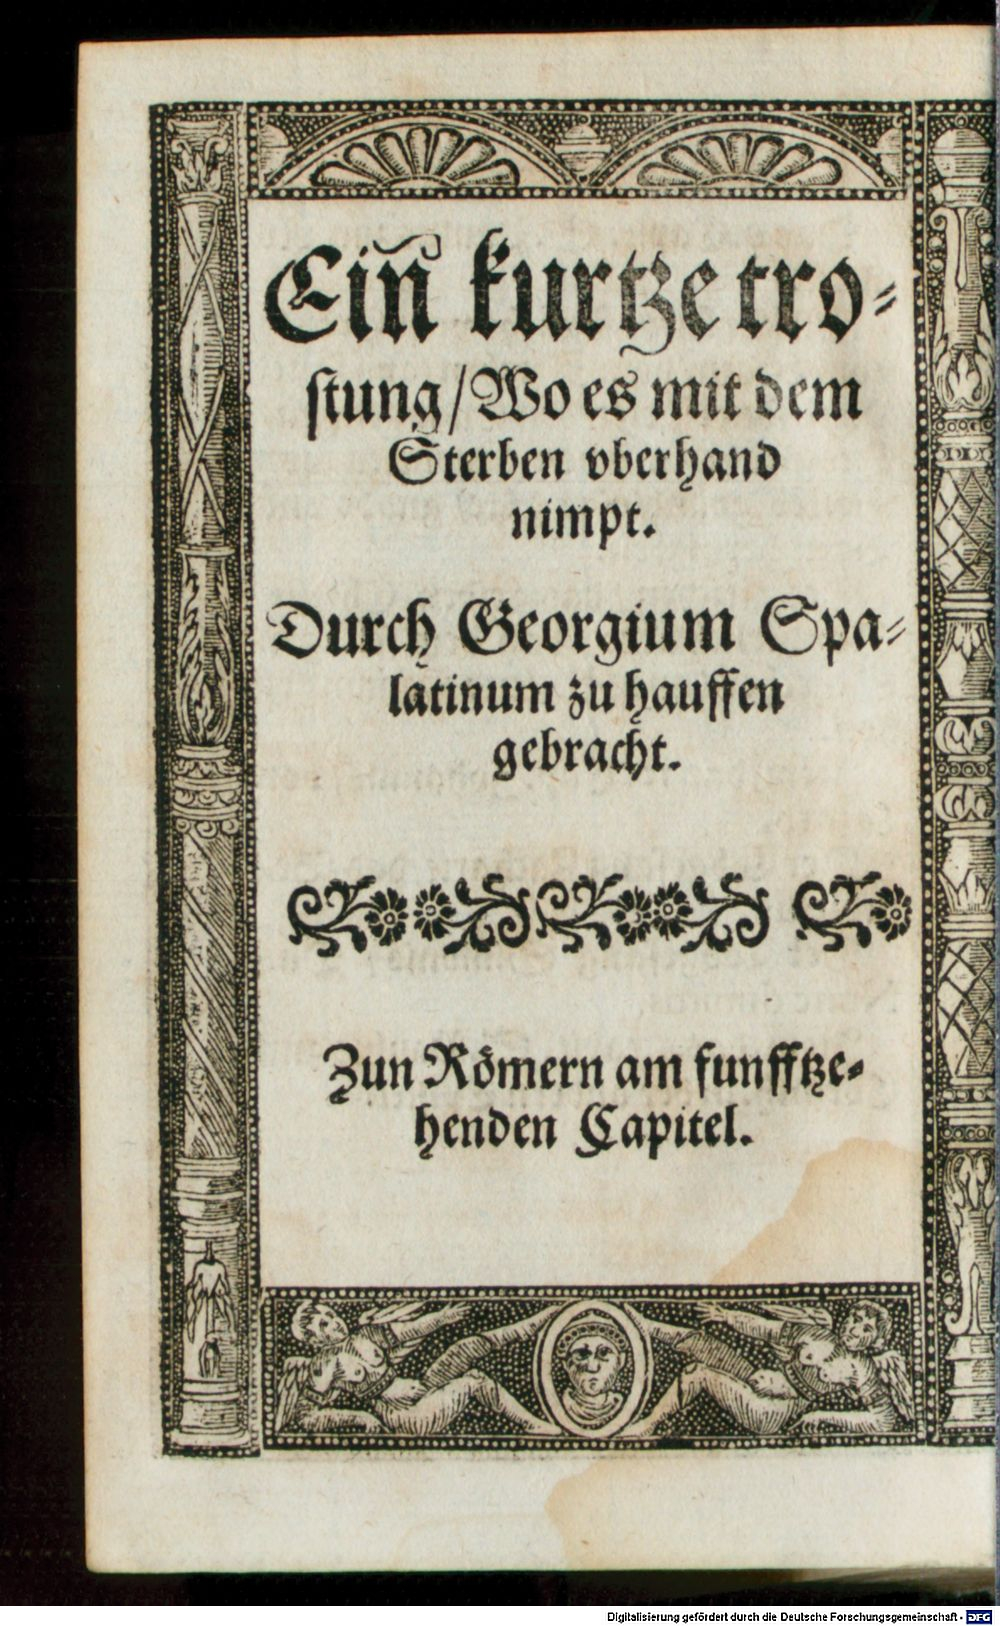 Ein̄ kurtze tro⸗
stung/Wo es mit dem
Sterben vberhand
nimpt.
Durch Georgium Spa⸗
latinum zu hauffen
gebracht.
Zun Römern am funfftze⸗
henden Capitel.
Digitalisierung gefördert durch die Deutsche Forschungsgemeinschaft - DFG